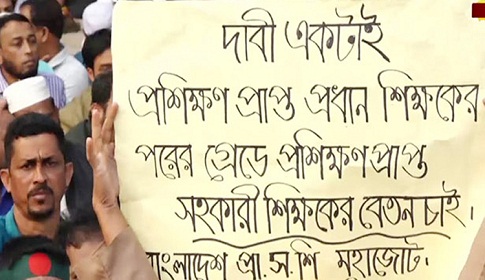 দাবী একটাই
প্রশিক্ষণ প্রাপ্ত প্রধান শিক্ষকের
পরের গ্রেডে প্রশিক্ষণ প্রাপ্ত
সহকারী শিক্ষকের বেতন চাই।
বাংলাদেশ প্রা.স.শি মহাজোট.